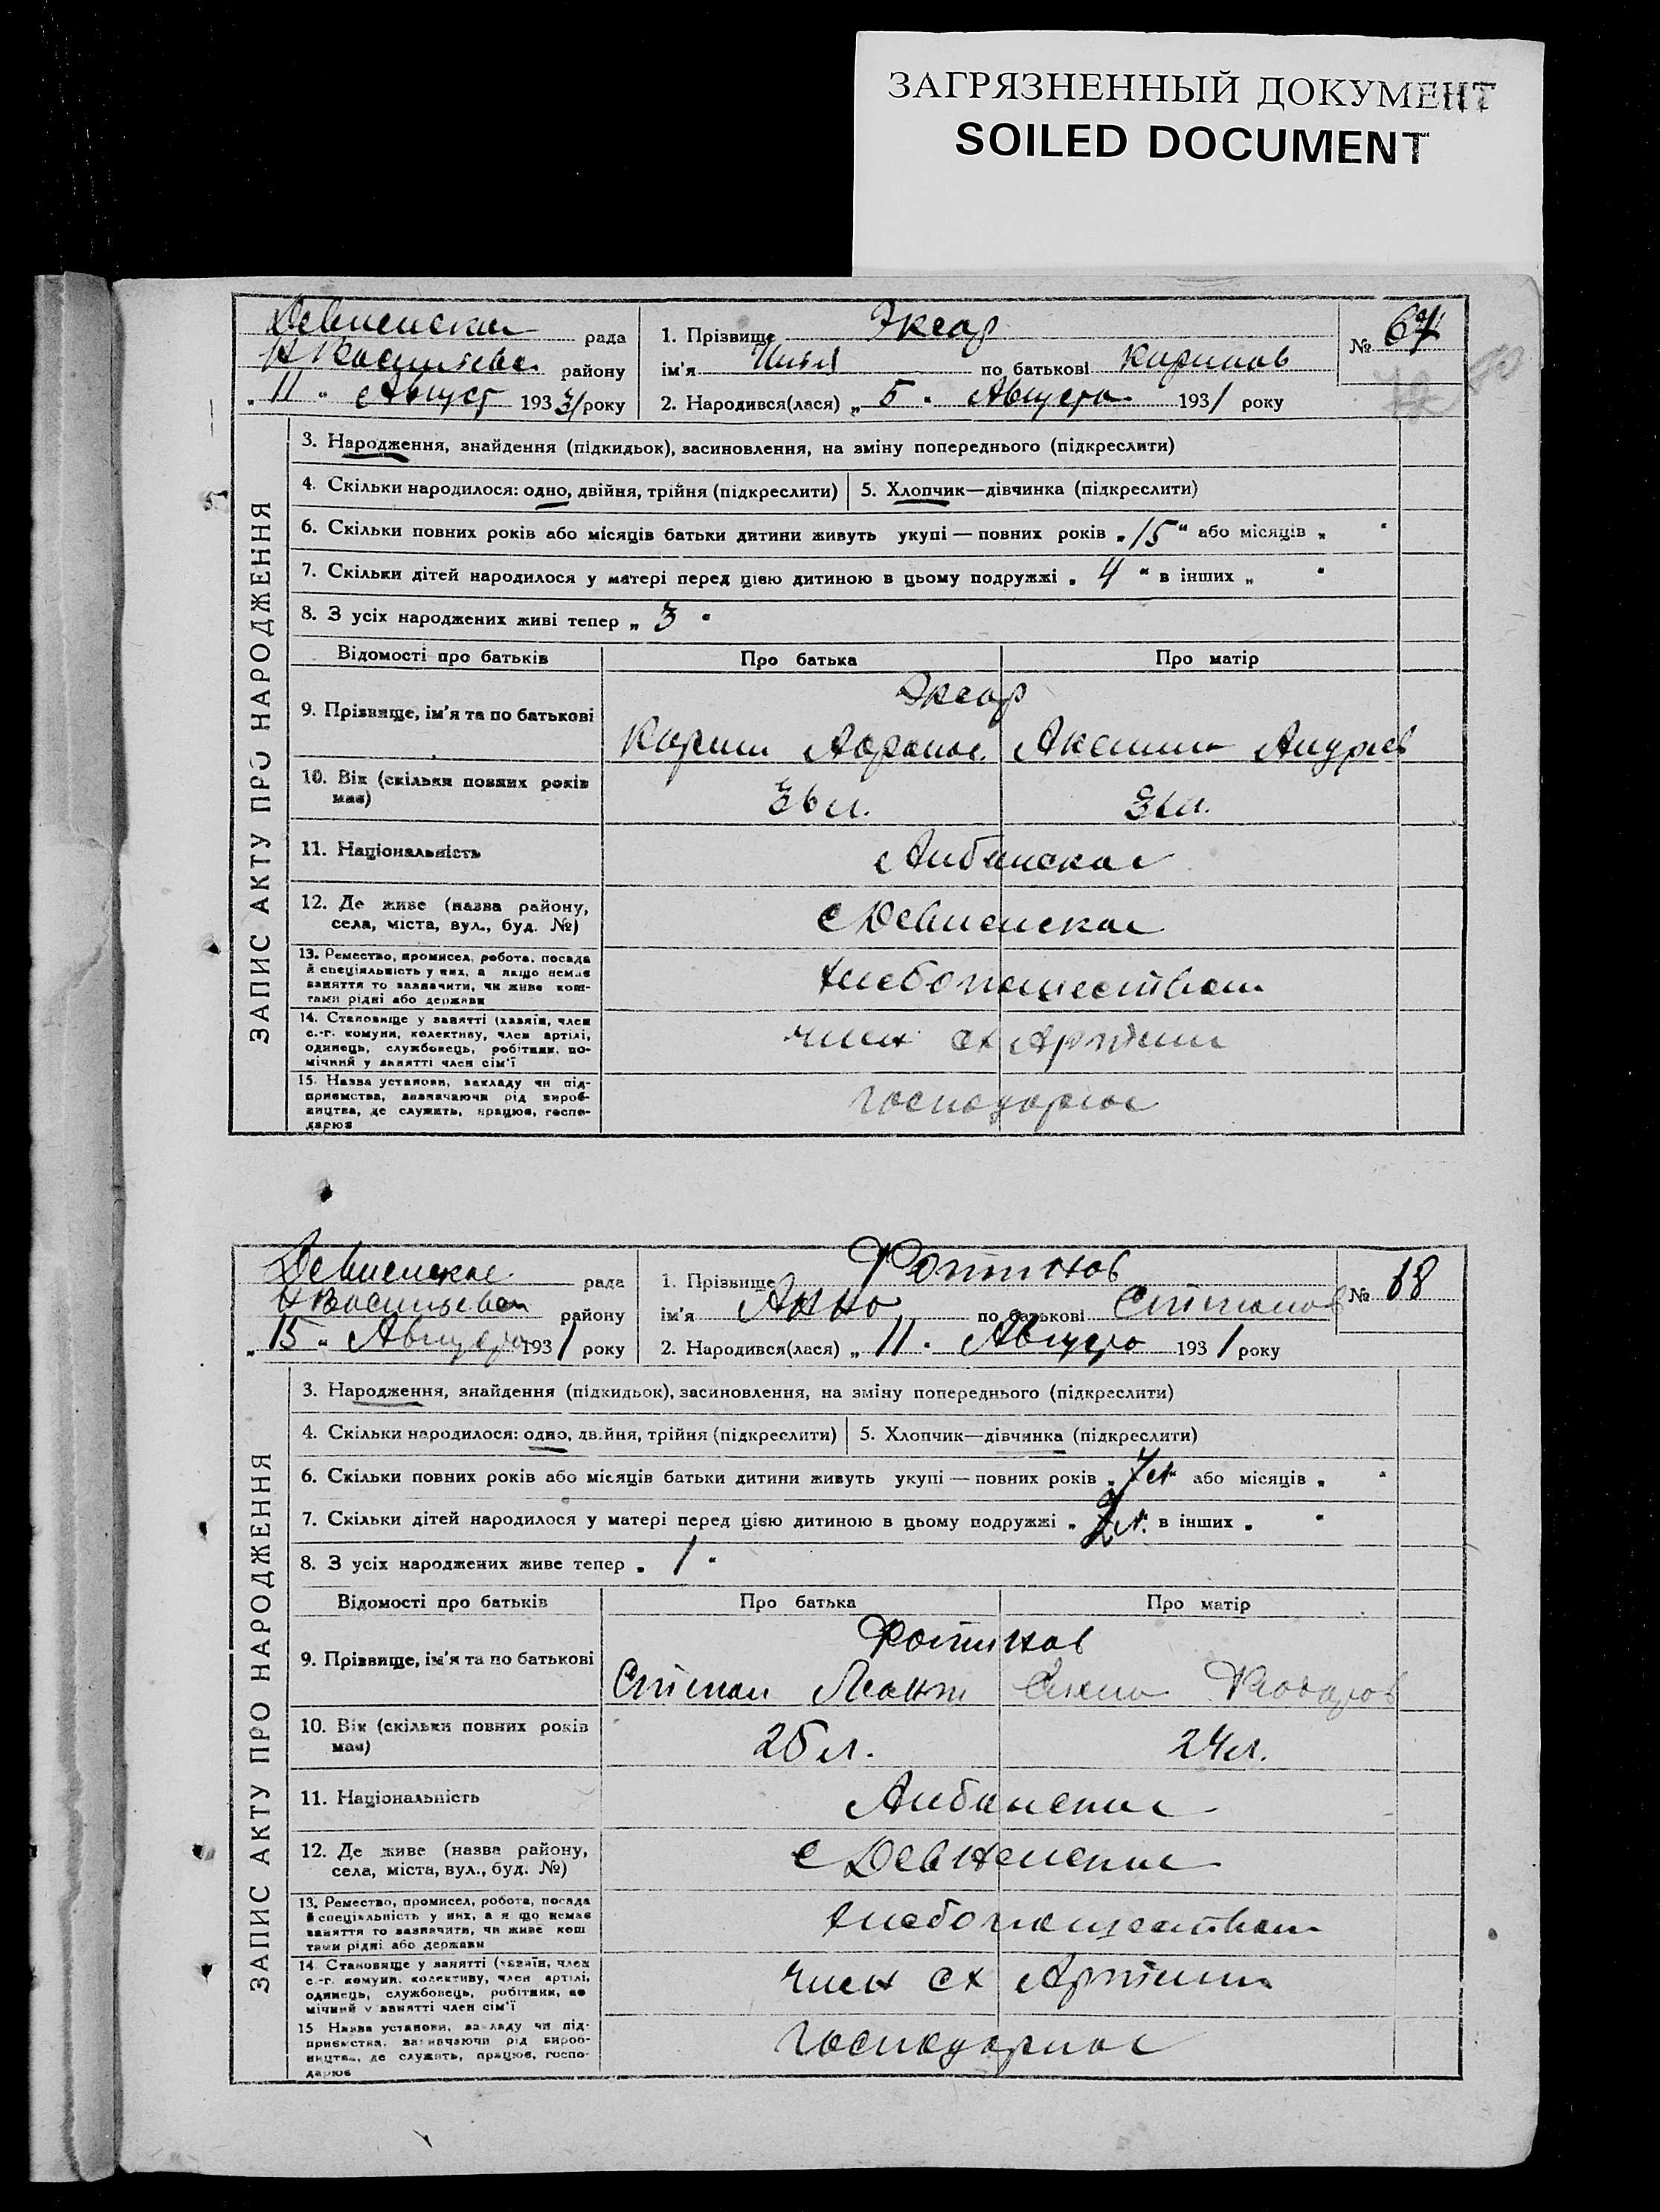 ЗАГРЯЗНЕННЫЙ ДОКУМЕНТ
SOILED DOCUMENT
Девненская рада
Н Васильевс. району
„ 11 “ Август 1931 року
1. Прізвище Эксар
ім'я Илья по батькові Кирилов
2. Народився(лася) „ 5 “ Августа 1931 року
№ 67
ЗАПИС АКТУ ПРО НАРОДЖЕННЯ
3. Народження, знайдення (підкидьок), засиновлення, на зміну попереднього (підкреслити)
4. Скільки народилося: одно, двійня, трійня (підкреслити) 5. Хлопчик—дівчинка (підкреслити)
6. Скільки повних років або місяців батьки дитини живуть укупі — повних років „ 15 “ або місяців „ “
7. Скільки дітей народилося у матері перед цією дитиною в цьому подружжі „ 4 “ в інших „ “
8. З усіх народжених живі тепер „ 3 “
Відомості про батьків Про батька Про матір
9. Прізвище, ім'я та по батькові Эксар
Кирил Афанас. Аксиния Андреев
10. Вік (скільки повних років має) 36 л. л.
11. Національність Албанская
12. Де живе (назва району, села, міста, вул., буд. №) с Девненское
13. Ремество, промисел, робота, посада
й спеціяльність у них, а якщо немає
заняття то зазначити, чи живе кош-
тами рідні або держави
Хлебопашеством
14. Становище у занятті (хазяїн, член
с.-г. комуни, колективу, член артілі,
одинець, службовець, робітник, по-
мічний у занятті член сім'ї
член сх Артели
15. Назва установи, закладу чи під-
приємства, зазначаючи рід вироб-
ництва, де служить, працює, госпо-
дарює
Девненское рада
Н Васильевск району
„ 15 “ Августа 1931 року
1. Прізвище
ім'я Анна по батькові Степанов
2. Народився(лася) „ 11 “ Августа 1931 року
№ 68
ЗАПИС АКТУ ПРО НАРОДЖЕННЯ
3. Народження, знайдення (підкидьок), засиновлення, на зміну попереднього (підкреслити)
4. Скільки народилося: одно, двійня, трійня (підкреслити) 5. Хлопчик—дівчинка (підкреслити)
6. Скільки повних років або місяців батьки дитини живуть укупі — повних років „ 7 л “ або місяців „ “
7. Скільки дітей народилося у матері перед цією дитиною в цьому подружжі „ “ в інших „ “
8. З усіх народжених живе тепер „ 1 “
Відомості про батьків Про батька Про матір
9. Прізвище, ім'я та по батькові
Степан Леонт Федоров
10. Вік (скільки повних років має) 25 л. 24 л.
11. Національність Албанские
12. Де живе (назва району, села, міста, вул., буд. №) с Девненские
13. Ремество, промисел, робота, посада
й спеціяльність у них, а якщо немає
заняття то зазначити, чи живе кош
тами рідні або держави
Хлебопашеством
14. Становище у занятті (хазяїн, член
с.-г. комуни, колективу, член артілі,
одинець, службовець, робітник, по
мічний у занятті член сім'ї
член сх Артели
15 Назва установи, закладу чи під-
приємства, зазначаючи рід вироб-
ництва, де служить, працює, госпо-
дарює